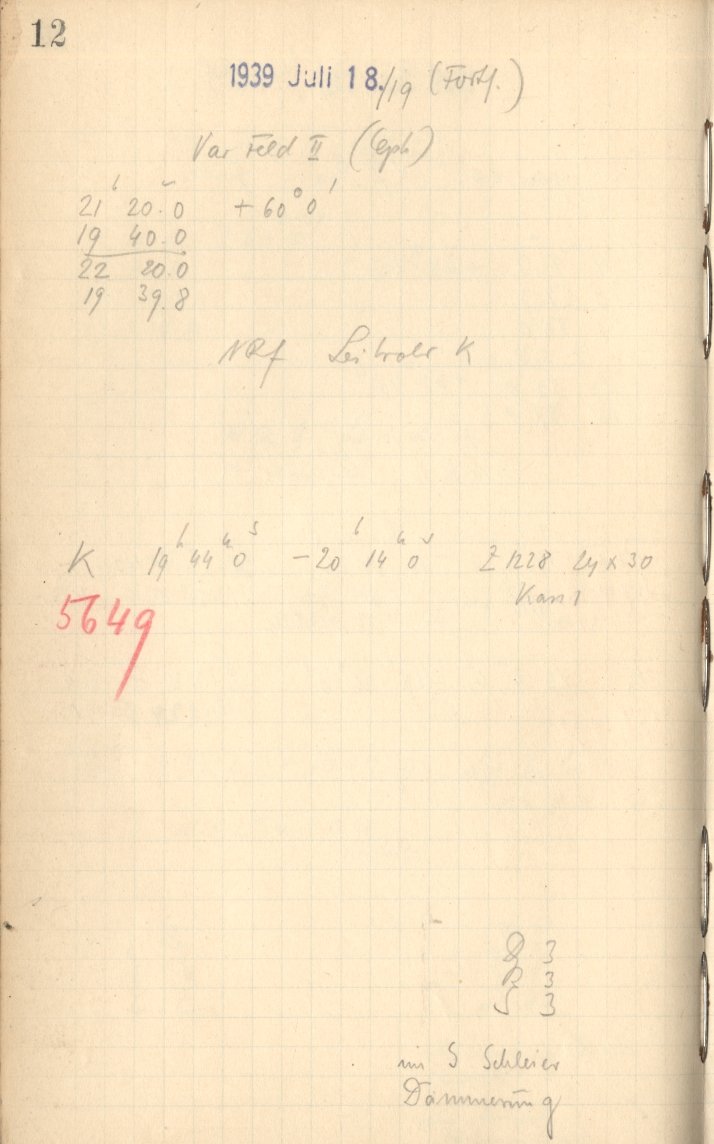 12
1939 Juli 18./19 (Fortf.)
Var Feld II (Ceph)
21h 20.0 +60° 0'
19 40.0
22 20.0
19 39.8
Leitrohr K
K 19h 44m 0s –20h 14m 0s Z 1228 24 x 30
Kass 1
5649
3
R 3
S 3
im S Schleier
Dämmerung